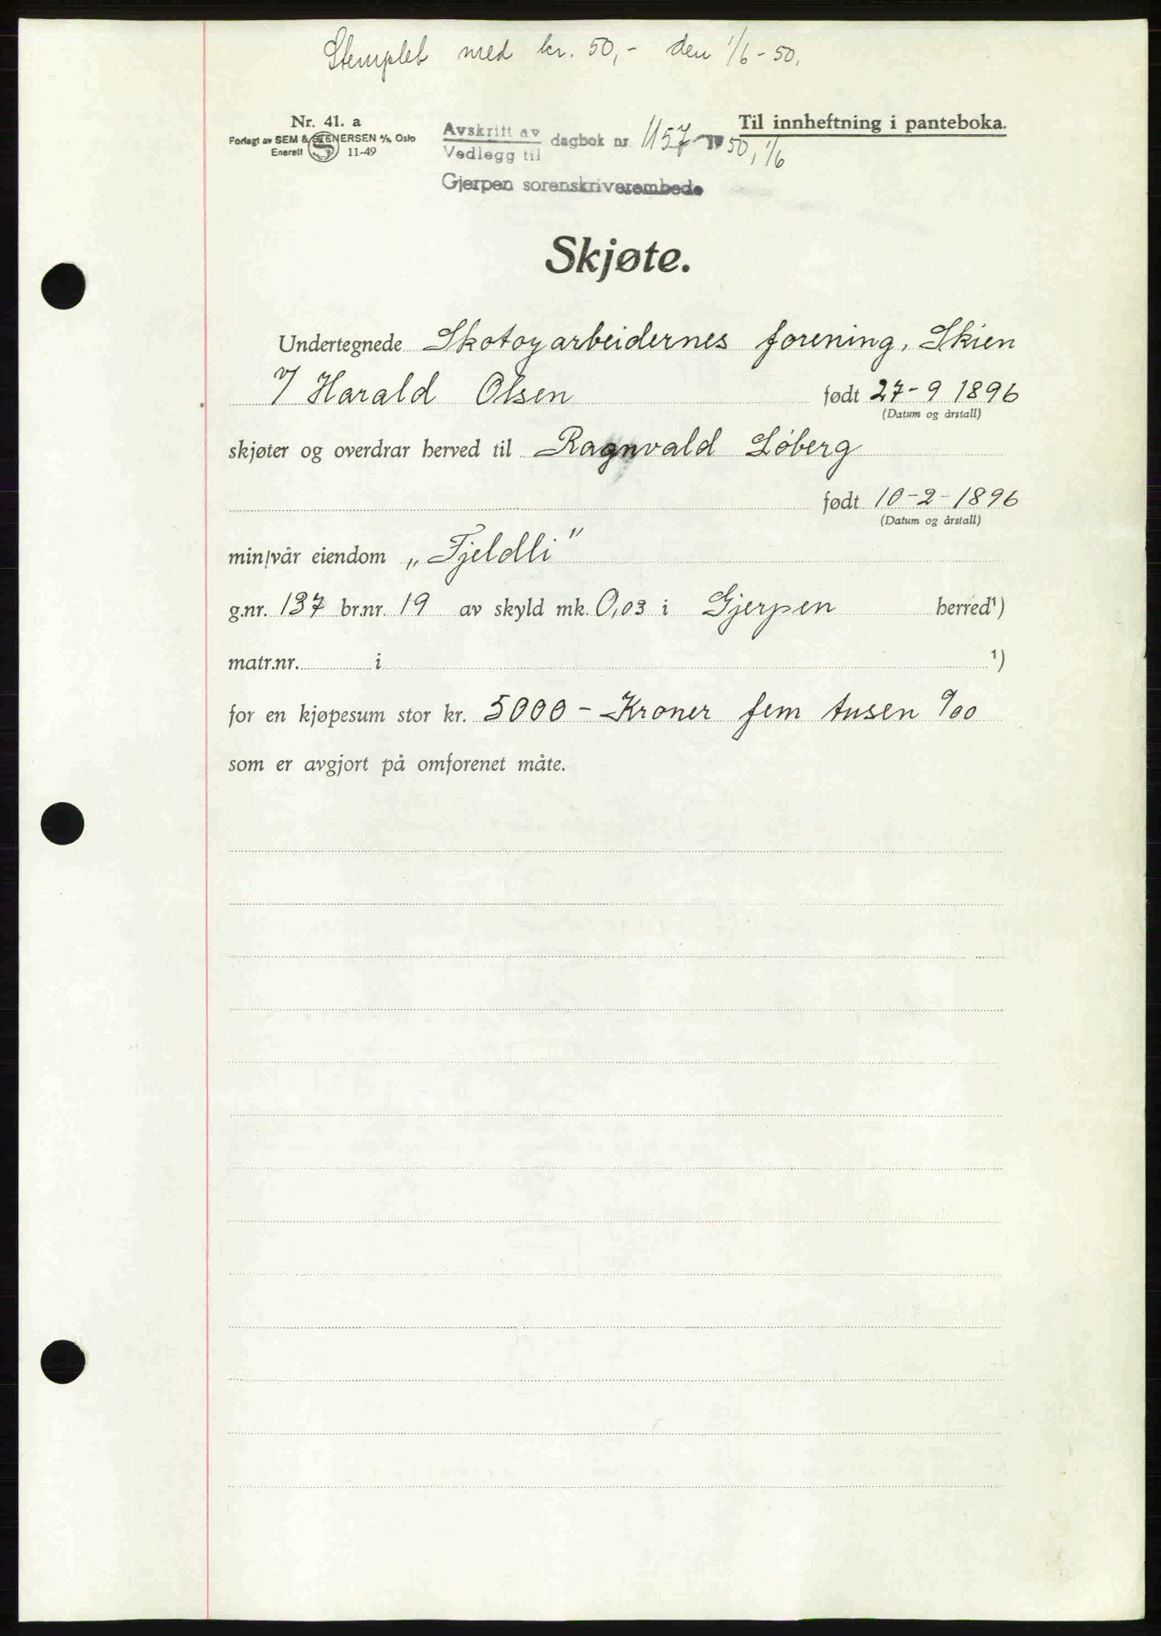 Stemplet med kr. 50,- den 1/6-50.
Nr. 41. a
Forlagt av SEM & STENERSEN A/S, Oslo
Enerett 11-49
Avskrift av
Vedlegg til
dagbok nr. 1157 - 1950, 1/6
Til innheftning i panteboka.
Gjerpen sorenskriverembede
Skjøte.
Undertegnede Skotøyarbeidernes forening, Skien
v/ Harald Olsen født 27-9 1896
(Datum og årstall)
skjøter og overdrar herved til Ragnvald Løberg
født 10-2-1896
(Datum og årstall)
min/vår eiendom „Fjeldli"
g.nr. 137 br.nr. 19 av skyld mk. 0,03 i Gjerpen herred¹)
matr.nr. i ¹)
for en kjøpesum stor kr. 5000 - Kroner fem tusen 0/00
som er avgjort på omforenet måte.